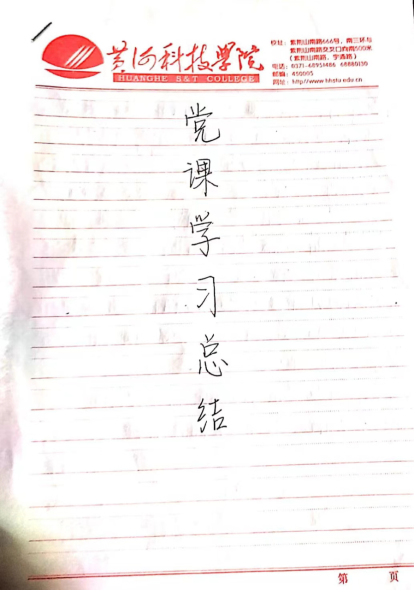 黄河科技学院
HUANGHE S&T COLLEGE
校址：紫荆山南路666号，南三环与
紫荆山南路交叉口向南500米
（紫荆山南路，宇通路）
电话：0371-68951486 68880130
邮编：450005
网址：http://www.hhstu.edu.cn
党课学习总结
第 页